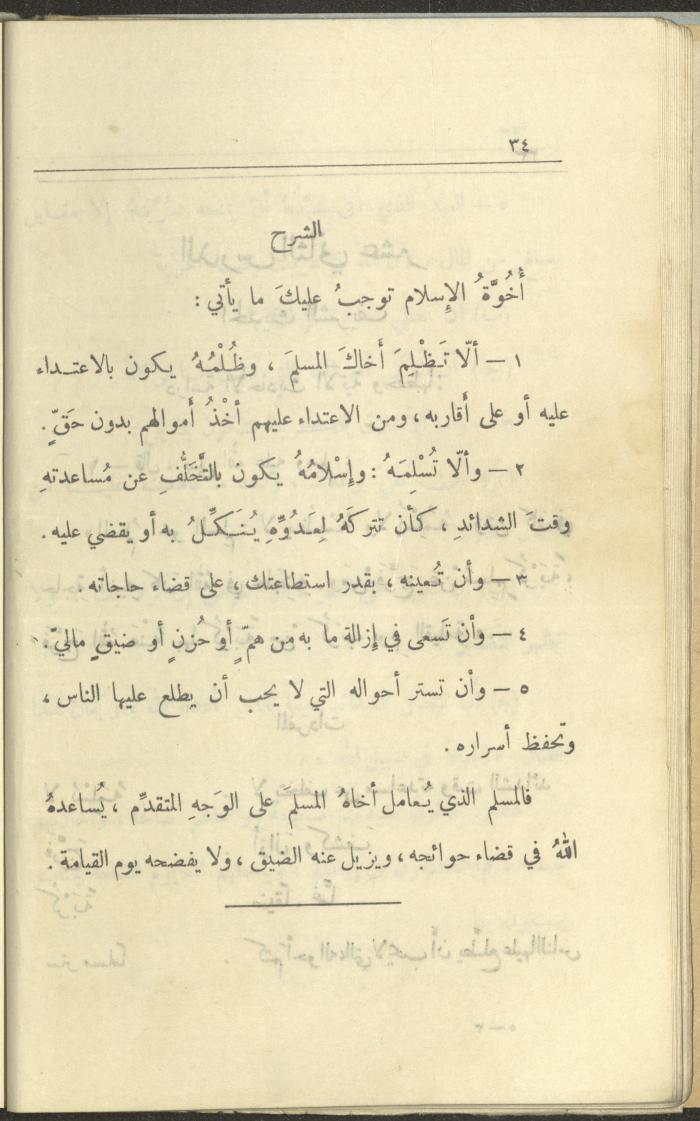 ٣٤
الشرح
أُخُوَّةُ الإِسلام توجبُ عليكَ ما يأتي :
١ — ألّا تَظْلِمَ أَخاكَ المسلمَ ، وظُلْمُهُ يكون بالاعتداء
عليه أو على أَقاربه ، ومن الاعتداء عليهم أخْذُ أَموالهم بدون حَقٍّ .
٢ — وألّا تُسْلِمَهُ : وإِسْلامُهُ يكون بالتَّخَلُّفِ عن مُساعدتهِ
وقتَ الشدائدِ ، كأن تتركَهُ لِعَدُوِّهِ يُنَكِّلُ به أو يقضي عليه .
٣ — وأن تُعينه ، بقدر استطاعتك ، على قضاء حاجاته .
٤ — وأن تَسعى في إِزالة ما به من همٍّ أو حُزنٍ أو ضيقٍ ماليّ .
٥ — وأن تستر أحواله التي لا يحب أن يطلع عليها الناس ،
وتحفظ أسراره .
فالمسلم الذي يُعامل أخاهُ المسلمَ على الوَجهِ المتقدِّم ، يُساعدهُ
اللهُ في قضاء حوائجه ، ويزيل عنه الضيق ، ولا يفضحه يوم القيامة .